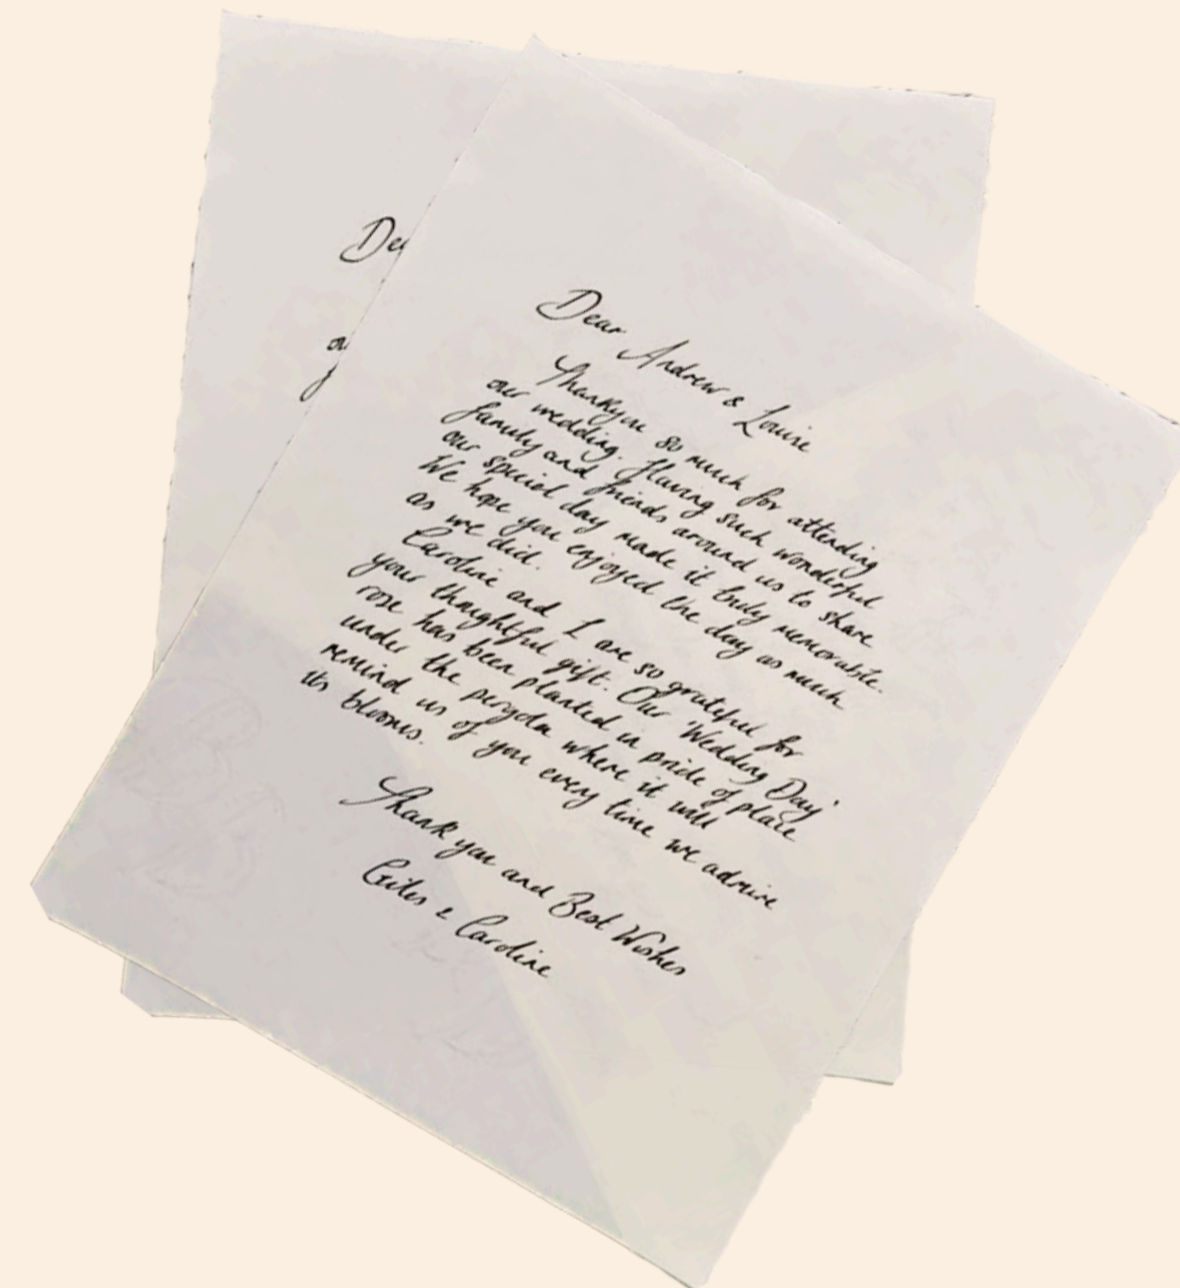 Dear Andrew & Louise
Thankyou so much for attending
our wedding. Having such wonderful
family and friends around us to share
our special day made it truly memorable.
We hope you enjoyed the day as much
as we did.
Caroline and I are so grateful for
your thoughtful gift. Our 'Wedding Day'
rose has been planted in pride of place
under the pergola where it will
remind us of you every time we admire
its blooms.
Thank you and Best Wishes
Giles & Caroline